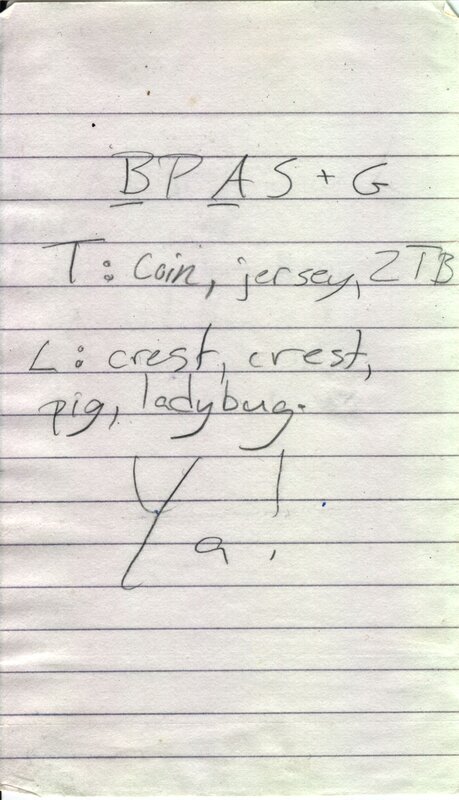 BPAS + G
T: Coin, jersey, 2TB
L: crest, crest,
pig, ladybug.
Ya!